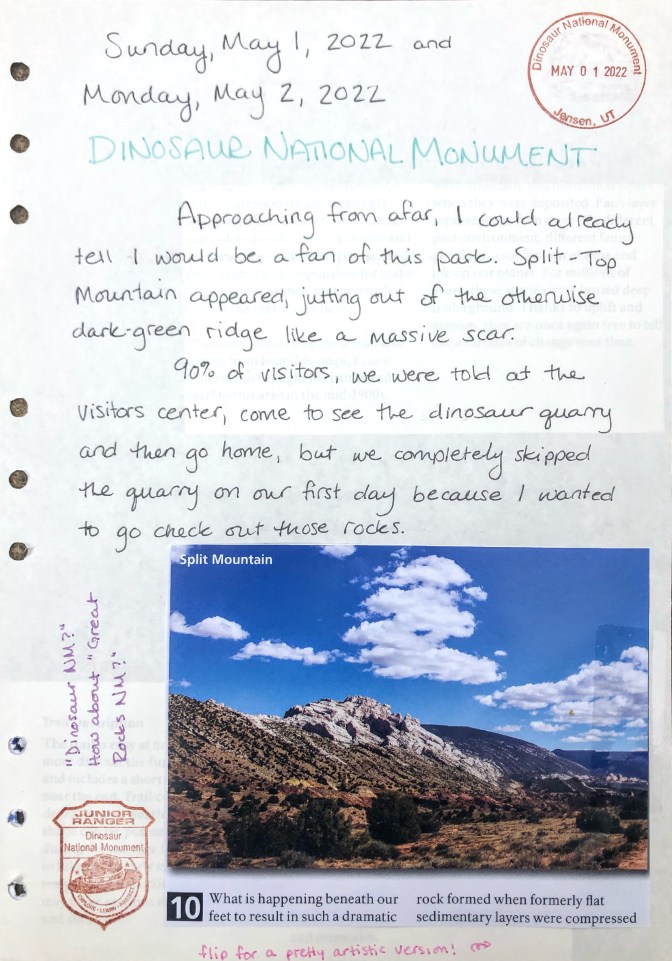 Sunday, May 1, 2022 and
Monday, May 2, 2022
Dinosaur National Monument
MAY 0 1 2022
Jensen, UT
DINOSAUR NATIONAL MONUMENT
Approaching from afar, I could already
tell I would be a fan of this park. Split-Top
Mountain appeared, jutting out of the otherwise
dark-green ridge like a massive scar.
90% of visitors, we were told at the
visitors center, come to see the dinosaur quarry
and then go home, but we completely skipped
the quarry on our first day because I wanted
to go check out those rocks.
Split Mountain
"Dinosaur NM?"
How about "Great
Rocks NM?"
JUNIOR
RANGER
Dinosaur
National Monument
EXPLORE · LEARN · PROTECT
10 What is happening beneath our
feet to result in such a dramatic
rock formed when formerly flat
sedimentary layers were compressed
flip for a pretty artistic version!